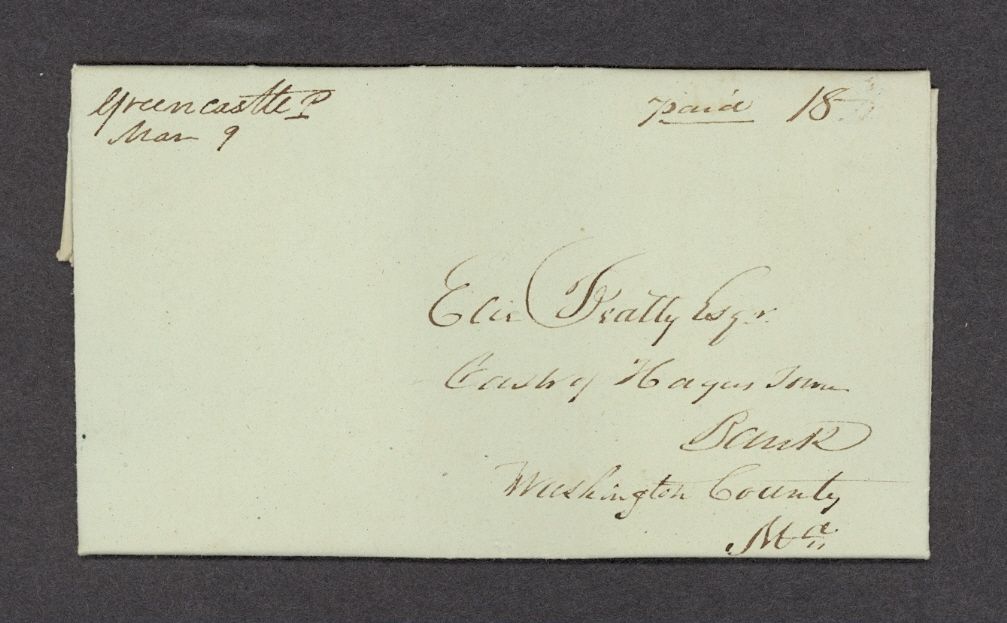 Greencastle P
Mar 9
paid 18
Elie Beatty Esqr.
Cash of Hagers Town
Bank
Washington County
Md.